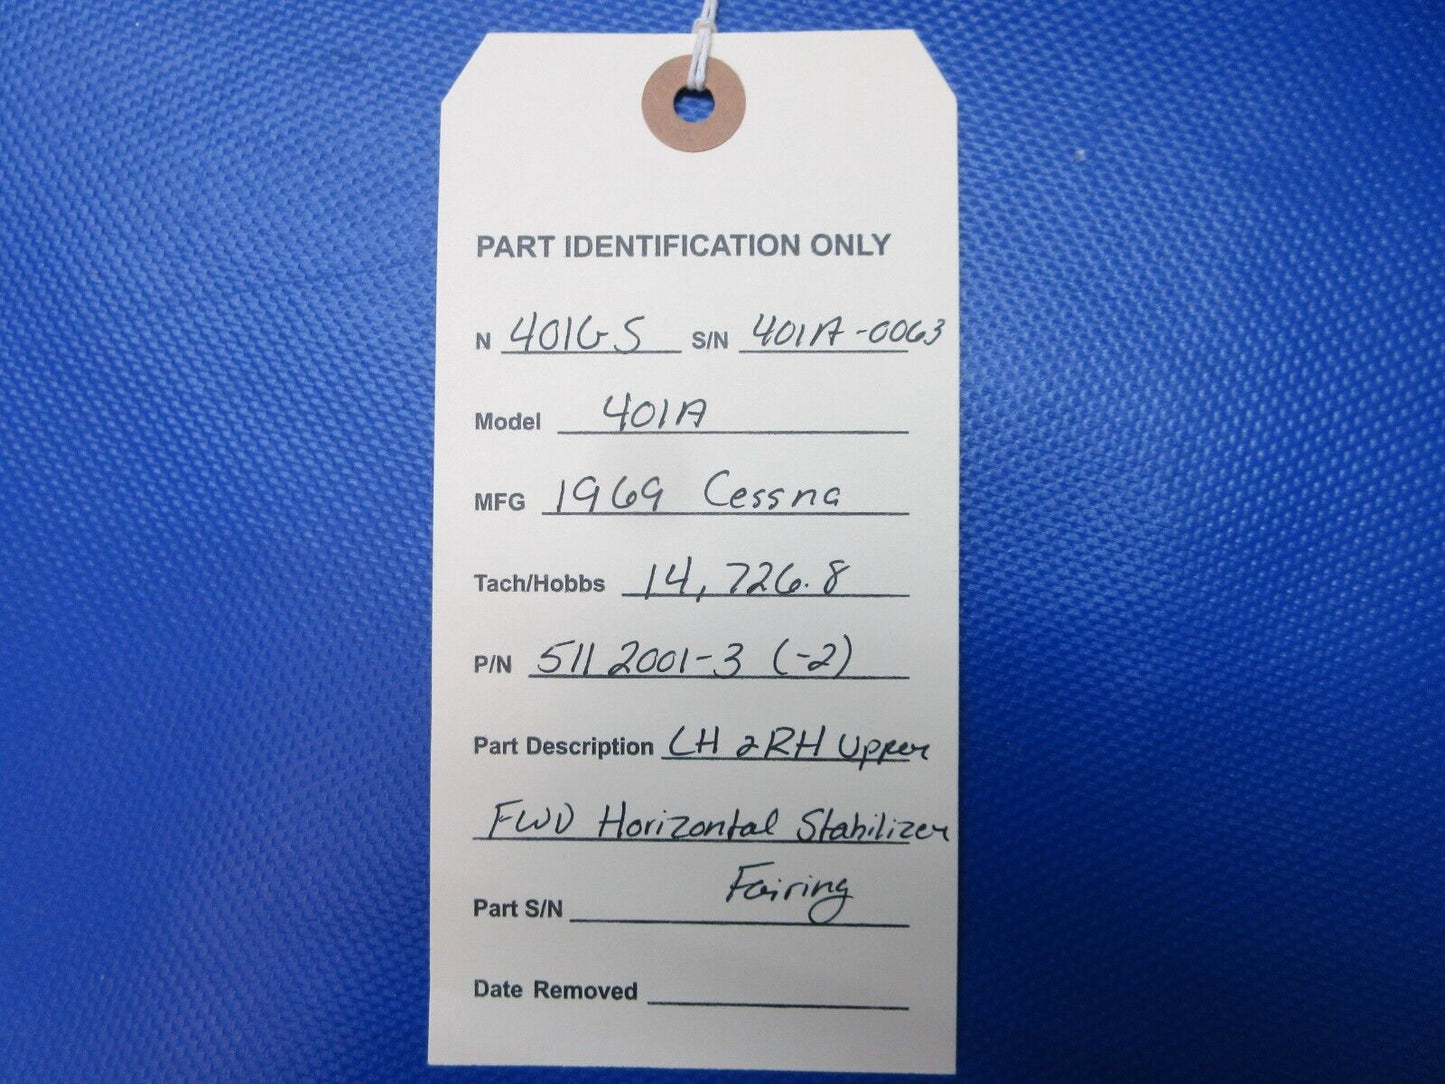 PART IDENTIFICATION ONLY
N 401GS S/N 401A-0063
Model 401A
MFG 1969 Cessna
Tach/Hobbs 14,726.8
P/N 5112001-3 (-2)
Part Description LH & RH Upper
FWD Horizontal Stabilizer
Fairing
Part S/N
Date Removed